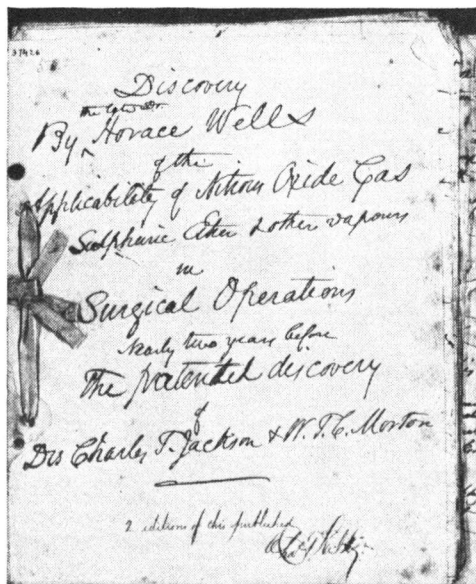 37426
Discovery
the late Dr
By ^ Horace Wells
of the
Applicability of Nitrous Oxide Gas
Sulphuric Ether & other vapours
in
Surgical Operations
Nearly two years before
The patented discovery
of
Drs Charles T. Jackson & W. T. G. Morton
2 editions of this published